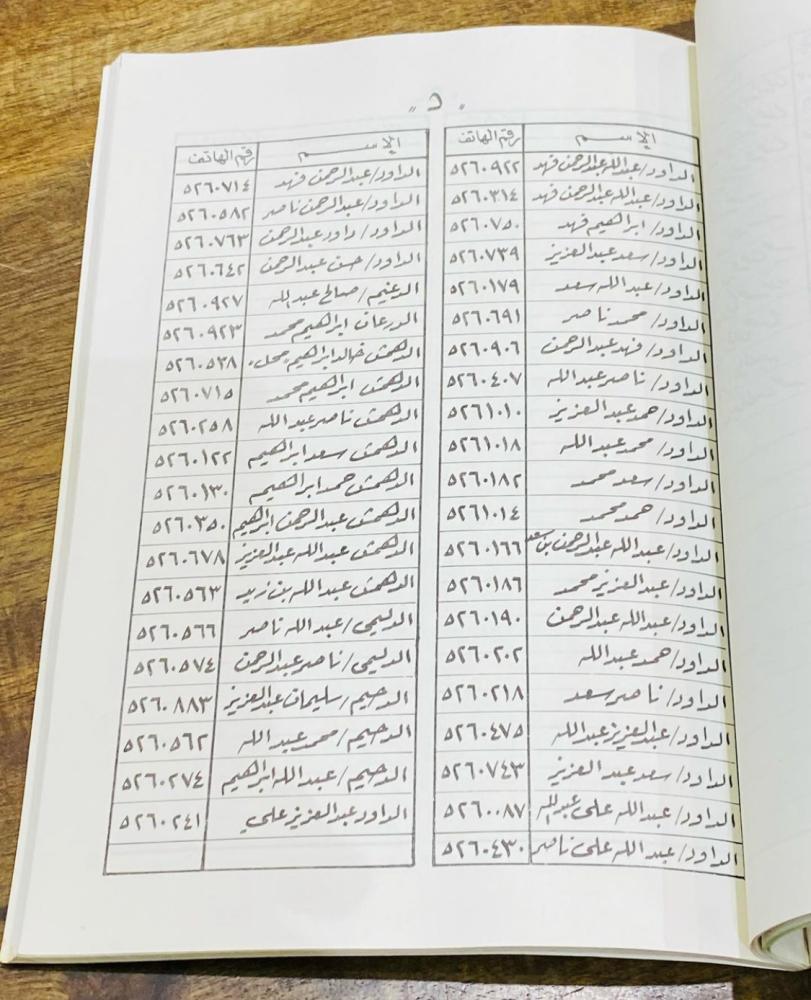 "د"
الإســـم رقم الهاتف
الداود/عبدالله عبدالرحمن فهد ٥٢٦٠٩٢٢
الداود/عبدالله عبدالرحمن فهد ٥٢٦٠٣١٤
الداود/ابراهيم فهد ٥٢٦٠٧٥٠
الداود/سعد عبدالعزيز ٥٢٦٠٧٣٩
الداود/عبدالله سعد ٥٢٦٠١٧٩
الداود/محمد ناصر ٥٢٦٠٦٩١
الداود/فهد عبدالرحمن ٥٢٦٠٩٠٦
الداود/ناصر عبدالله ٥٢٦٠٤٠٧
الداود/حمد عبدالعزيز ٥٢٦١٠١٠
الداود/محمد عبدالله ٥٢٦١٠١٨
الداود/سعد محمد ٥٢٦٠١٨٢
الداود/حمد محمد ٥٢٦١٠١٤
الداود/عبدالله عبدالرحمن بن سعد ٥٢٦٠١٦٦
الداود/عبدالعزيز محمد ٥٢٦٠١٨٦
الداود/عبدالله عبدالرحمن ٥٢٦٠١٩٠
الداود/حمد عبدالله ٥٢٦٠٢٠٢
الداود/ناصر سعد ٥٢٦٠٢١٨
الداود/عبدالعزيز عبدالله ٥٢٦٠٤٧٥
الداود/سعد عبدالعزيز ٥٢٦٠٧٤٣
الداود/عبدالله علي عبدالله ٥٢٦٠٠٨٧
الداود/عبدالله علي ناصر ٥٢٦٠٤٣٠
الإســـم رقم الهاتف
الداود/عبدالرحمن فهد ٥٢٦٠٧١٤
الداود/عبدالرحمن ناصر ٥٢٦٠٥٨٢
الداود/داود عبدالرحمن ٥٢٦٠٧٦٣
الداود/حسن عبدالرحمن ٥٢٦٠٦٤٢
الدغيم/صالح عبدالله ٥٢٦٠٩٢٧
الدرعان ابراهيم محمد ٥٢٦٠٩٢٣
الدهمش خالد ابراهيم محل ٥٢٦٠٥٣٨
الدهمش ابراهيم محمد ٥٢٦٠٧١٥
الدهمش ناصر عبدالله ٥٢٦٠٢٥٨
الدهمش سعد ابراهيم ٥٢٦٠١٢٢
الدهمش حمد ابراهيم ٥٢٦٠١٣٠
الدهمش عبدالرحمن ابراهيم ٥٢٦٠٣٥٠
الدهمش عبدالله عبدالعزيز ٥٢٦٠٦٧٨
الدهمش عبدالله بن زيد ٥٢٦٠٥٦٣
الدليمي/عبدالله ناصر ٥٢٦٠٥٦٦
الدليمي/ناصر عبدالرحمن ٥٢٦٠٥٧٤
الدحيم/سليمان عبدالعزيز ٥٢٦٠٨٨٣
الدحيم/محمد عبدالله ٥٢٦٠٥٦٢
الدحيم/عبدالله ابراهيم ٥٢٦٠٢٧٤
الداود عبدالعزيز علي ٥٢٦٠٢٤١